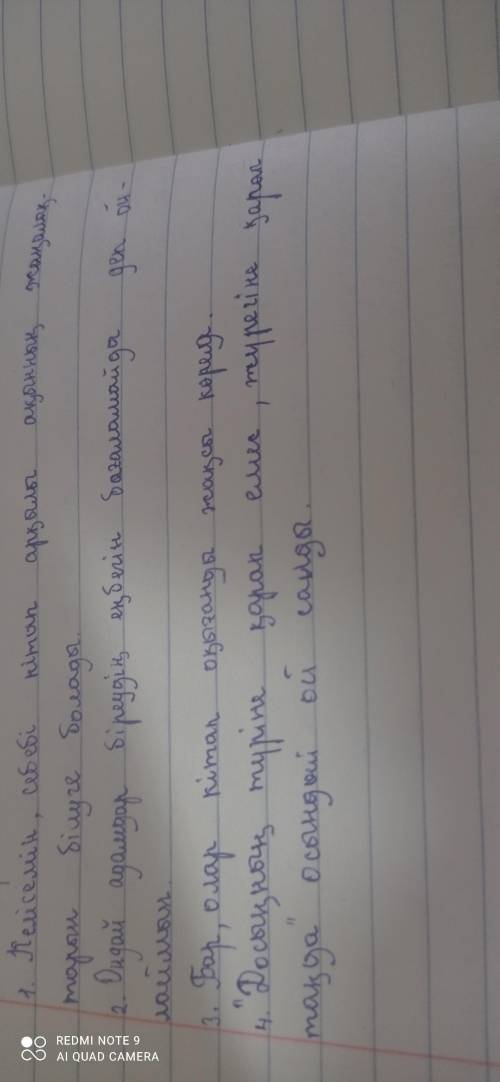 1. Келісемін, себебі кітап арқылы ақынның жаңалық-
тарын білуге болады.
2. Ондай адамдар біреудің еңбегін бағаламайды деп ой-
лаймын.
3. Бар, олар кітап оқығанды жақсы көреді.
4. "Досыңның түріне қарап емес, жүрегіне қарап
таңда" осындый ой салды.
REDMI NOTE 9
AI QUAD CAMERA